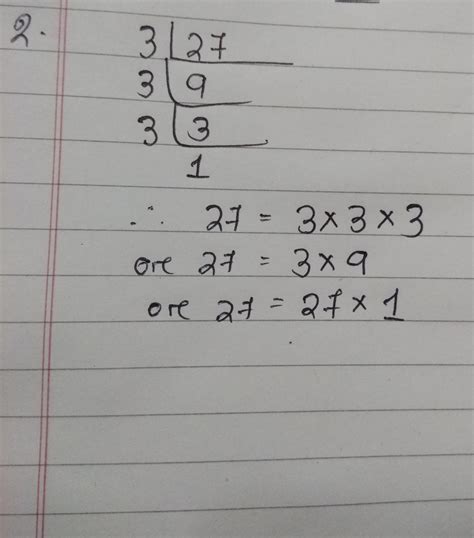 2. 3 | 27
3 | 9
3 | 3
1
∴ 27 = 3 × 3 × 3
ore 27 = 3 × 9
ore 27 = 27 × 1